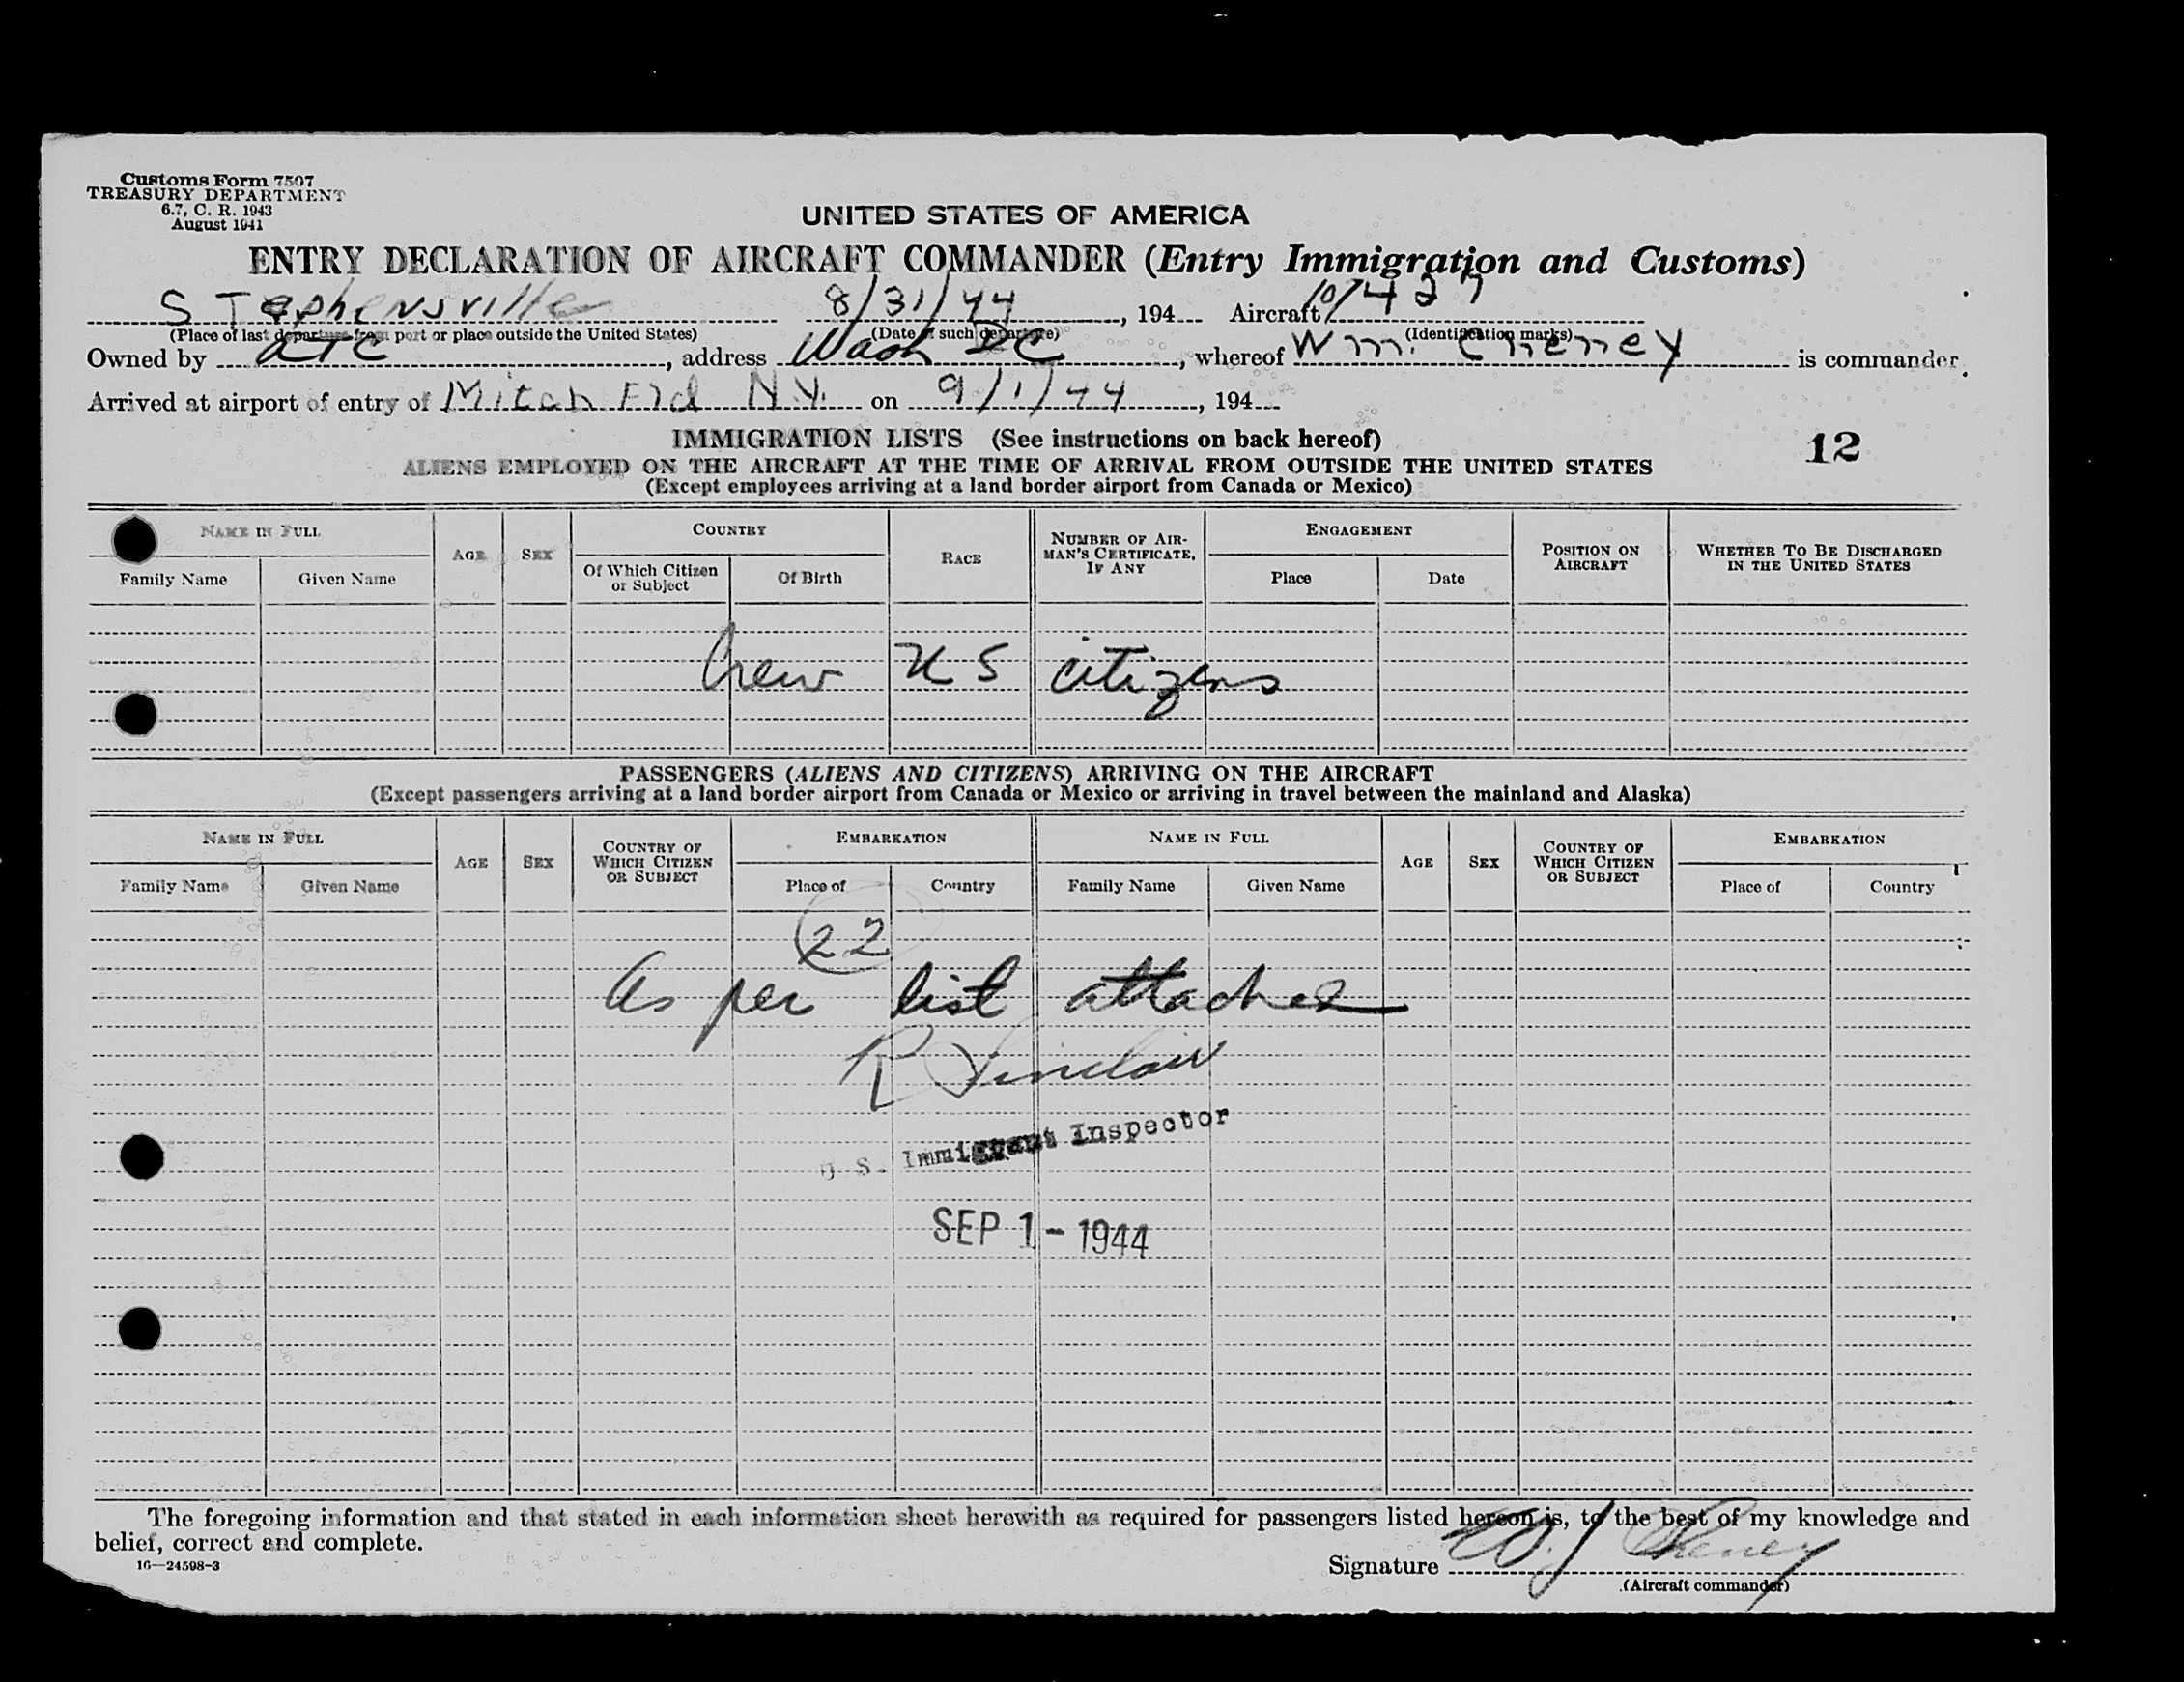 Customs Form 7507
TREASURY DEPARTMENT
6.7, C. R. 1943
August 1941
UNITED STATES OF AMERICA
ENTRY DECLARATION OF AIRCRAFT COMMANDER (Entry Immigration and Customs)
Stephensville 8/31/44, 194 Aircraft 10/427
(Place of last departure from port or place outside the United States) (Date of such departure) (Identification marks)
Owned by ATC, address Wash DC, whereof Wm. Cheney is commander.
Arrived at airport of entry of Mitch Fld N.Y. on 9/1/44, 194
IMMIGRATION LISTS (See instructions on back hereof) 12
ALIENS EMPLOYED ON THE AIRCRAFT AT THE TIME OF ARRIVAL FROM OUTSIDE THE UNITED STATES
(Except employees arriving at a land border airport from Canada or Mexico)
NAME IN FULL AGE SEX COUNTRY RACE NUMBER OF AIRMAN'S CERTIFICATE, IF ANY ENGAGEMENT POSITION ON AIRCRAFT WHETHER TO BE DISCHARGED IN THE UNITED STATES
Family Name Given Name Of Which Citizen or Subject Of Birth Place Date
Crew US citizens
PASSENGERS (ALIENS AND CITIZENS) ARRIVING ON THE AIRCRAFT
(Except passengers arriving at a land border airport from Canada or Mexico or arriving in travel between the mainland and Alaska)
NAME IN FULL AGE SEX COUNTRY OF WHICH CITIZEN OR SUBJECT EMBARKATION NAME IN FULL AGE SEX COUNTRY OF WHICH CITIZEN OR SUBJECT EMBARKATION
Family Name Given Name Place of Country Family Name Given Name Place of Country
22
As per list attached
R Sinclair
U. S. Immigrant Inspector
SEP 1 - 1944
The foregoing information and that stated in each information sheet herewith as required for passengers listed hereon is, to the best of my knowledge and
belief, correct and complete.
16—24598-3
Signature W J Cheney
(Aircraft commander)